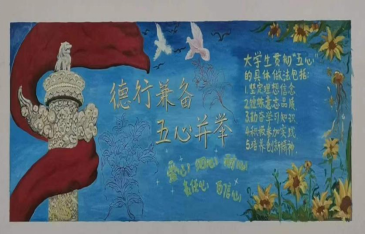 德行兼备
五心并举
爱心 忠心
责任心 自信心
大学生贯彻"五心"
的具体做法包括:
1.坚定理想信念
2.锤炼意志品质
3.勤奋学习知识
4.积极参加实践
5.培养创新精神.